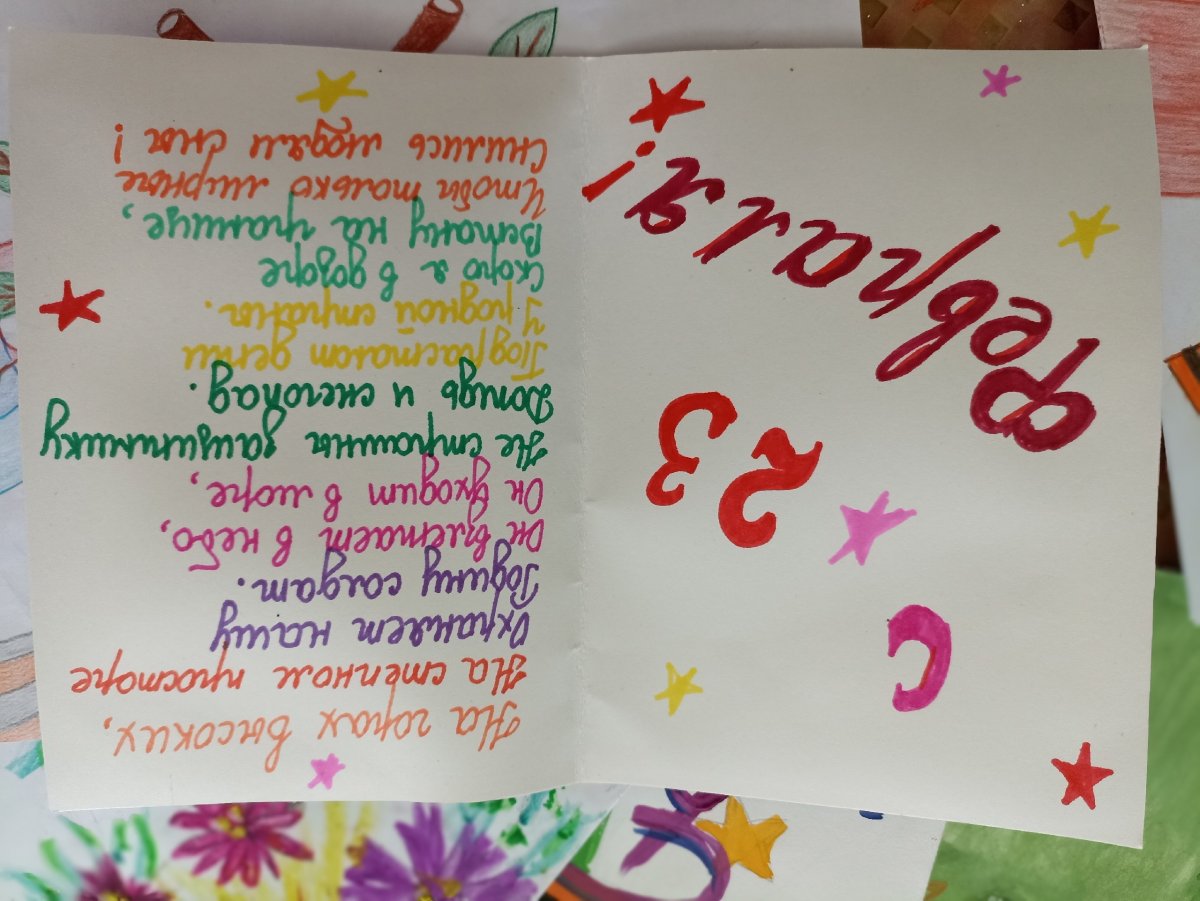 С
23
Февраля!
На горах высоких,
На степном просторе
Охраняет нашу
Родину солдат.
Он взлетает в небо,
Он уходит в море,
Не страшны защитнику
Дождь и снегопад.
Подрастают дети
У родной страны.
Скоро я в дозоре
Встану на границе,
Чтобы только мирные
Снились людям сны!